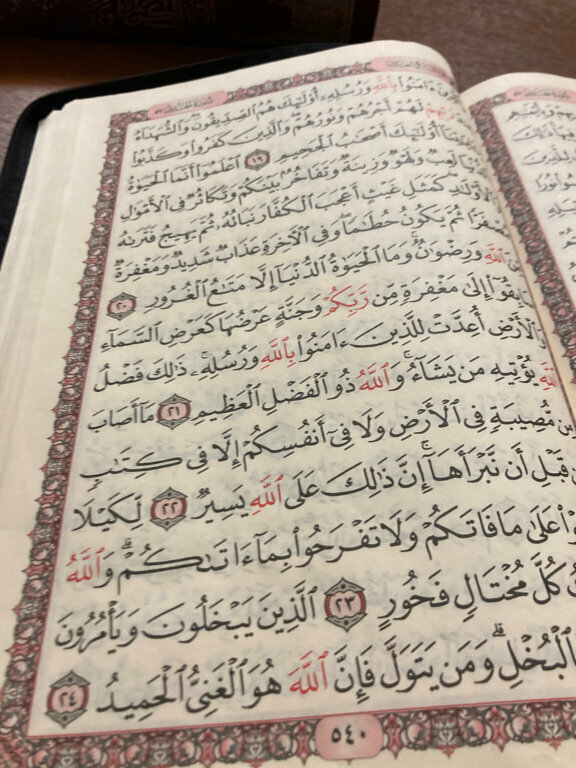 ءَامَنُوا۟ بِٱللَّهِ وَرُسُلِهِۦٓ أُو۟لَٰٓئِكَ هُمُ ٱلصِّدِّيقُونَ وَٱلشُّهَدَآءُ
رَبِّهِمْ لَهُمْ أَجْرُهُمْ وَنُورُهُمْ وَٱلَّذِينَ كَفَرُوا۟ وَكَذَّبُوا۟
أُو۟لَٰٓئِكَ أَصْحَٰبُ ٱلْجَحِيمِ ١٩ ٱعْلَمُوٓا۟ أَنَّمَا ٱلْحَيَوٰةُ
لَعِبٌ وَلَهْوٌ وَزِينَةٌ وَتَفَاخُرٌۢ بَيْنَكُمْ وَتَكَاثُرٌ فِى ٱلْأَمْوَٰلِ
وَٱلْأَوْلَٰدِ كَمَثَلِ غَيْثٍ أَعْجَبَ ٱلْكُفَّارَ نَبَاتُهُۥ ثُمَّ يَهِيجُ فَتَرَىٰهُ
مُصْفَرًّا ثُمَّ يَكُونُ حُطَٰمًا وَفِى ٱلْءَاخِرَةِ عَذَابٌ شَدِيدٌ وَمَغْفِرَةٌ
ٱللَّهِ وَرِضْوَٰنٌ وَمَا ٱلْحَيَوٰةُ ٱلدُّنْيَآ إِلَّا مَتَٰعُ ٱلْغُرُورِ ٢٠
سَابِقُوٓا۟ إِلَىٰ مَغْفِرَةٍ مِّن رَّبِّكُمْ وَجَنَّةٍ عَرْضُهَا كَعَرْضِ ٱلسَّمَآءِ
وَٱلْأَرْضِ أُعِدَّتْ لِلَّذِينَ ءَامَنُوا۟ بِٱللَّهِ وَرُسُلِهِۦ ذَٰلِكَ فَضْلُ
ٱللَّهِ يُؤْتِيهِ مَن يَشَآءُ وَٱللَّهُ ذُو ٱلْفَضْلِ ٱلْعَظِيمِ ٢١ مَآ أَصَابَ
مِن مُّصِيبَةٍ فِى ٱلْأَرْضِ وَلَا فِىٓ أَنفُسِكُمْ إِلَّا فِى كِتَٰبٍ
قَبْلِ أَن نَّبْرَأَهَآ إِنَّ ذَٰلِكَ عَلَى ٱللَّهِ يَسِيرٌ ٢٢ لِّكَيْلَا
عَلَىٰ مَا فَاتَكُمْ وَلَا تَفْرَحُوا۟ بِمَآ ءَاتَىٰكُمْ وَٱللَّهُ
كُلَّ مُخْتَالٍ فَخُورٍ ٢٣ ٱلَّذِينَ يَبْخَلُونَ وَيَأْمُرُونَ
ٱلْبُخْلِ وَمَن يَتَوَلَّ فَإِنَّ ٱللَّهَ هُوَ ٱلْغَنِىُّ ٱلْحَمِيدُ ٢٤
٥٤٠